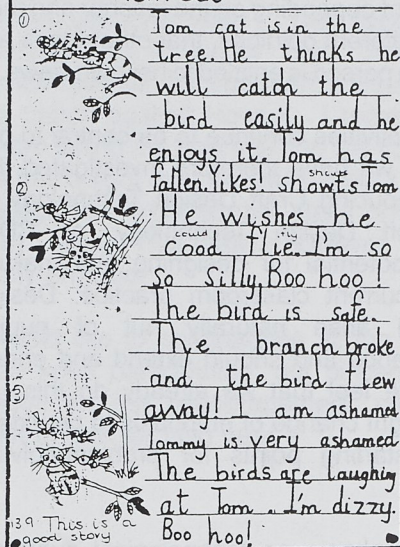 ①
Tom cat is in the
tree. He thinks he
will catch the
bird easily and he
enjoys it. Tom has
shouts
fallen. Yikes! showts Tom
②
He wishes he
could fly
cood flie. I'm so
so silly. Boo hoo!
The bird is safe.
The branch broke
and the bird flew
③
away! I am ashamed
Tommy is very ashamed
The birds are laughing
at Tom. I'm dizzy.
Boo hoo!
13.9 This is a
good story